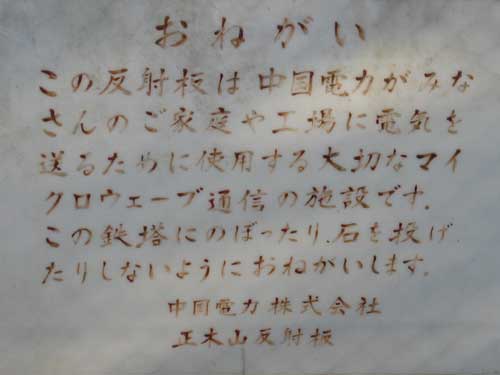 おねがい
この反射板は中国電力がみな
さんのご家庭や工場に電気を
送るために使用する大切なマイ
クロウェーブ通信の施設です.
この鉄塔にのぼったり.石を投げ.
たりしないようにおねがいします.
中国電力株式会社
正木山反射板